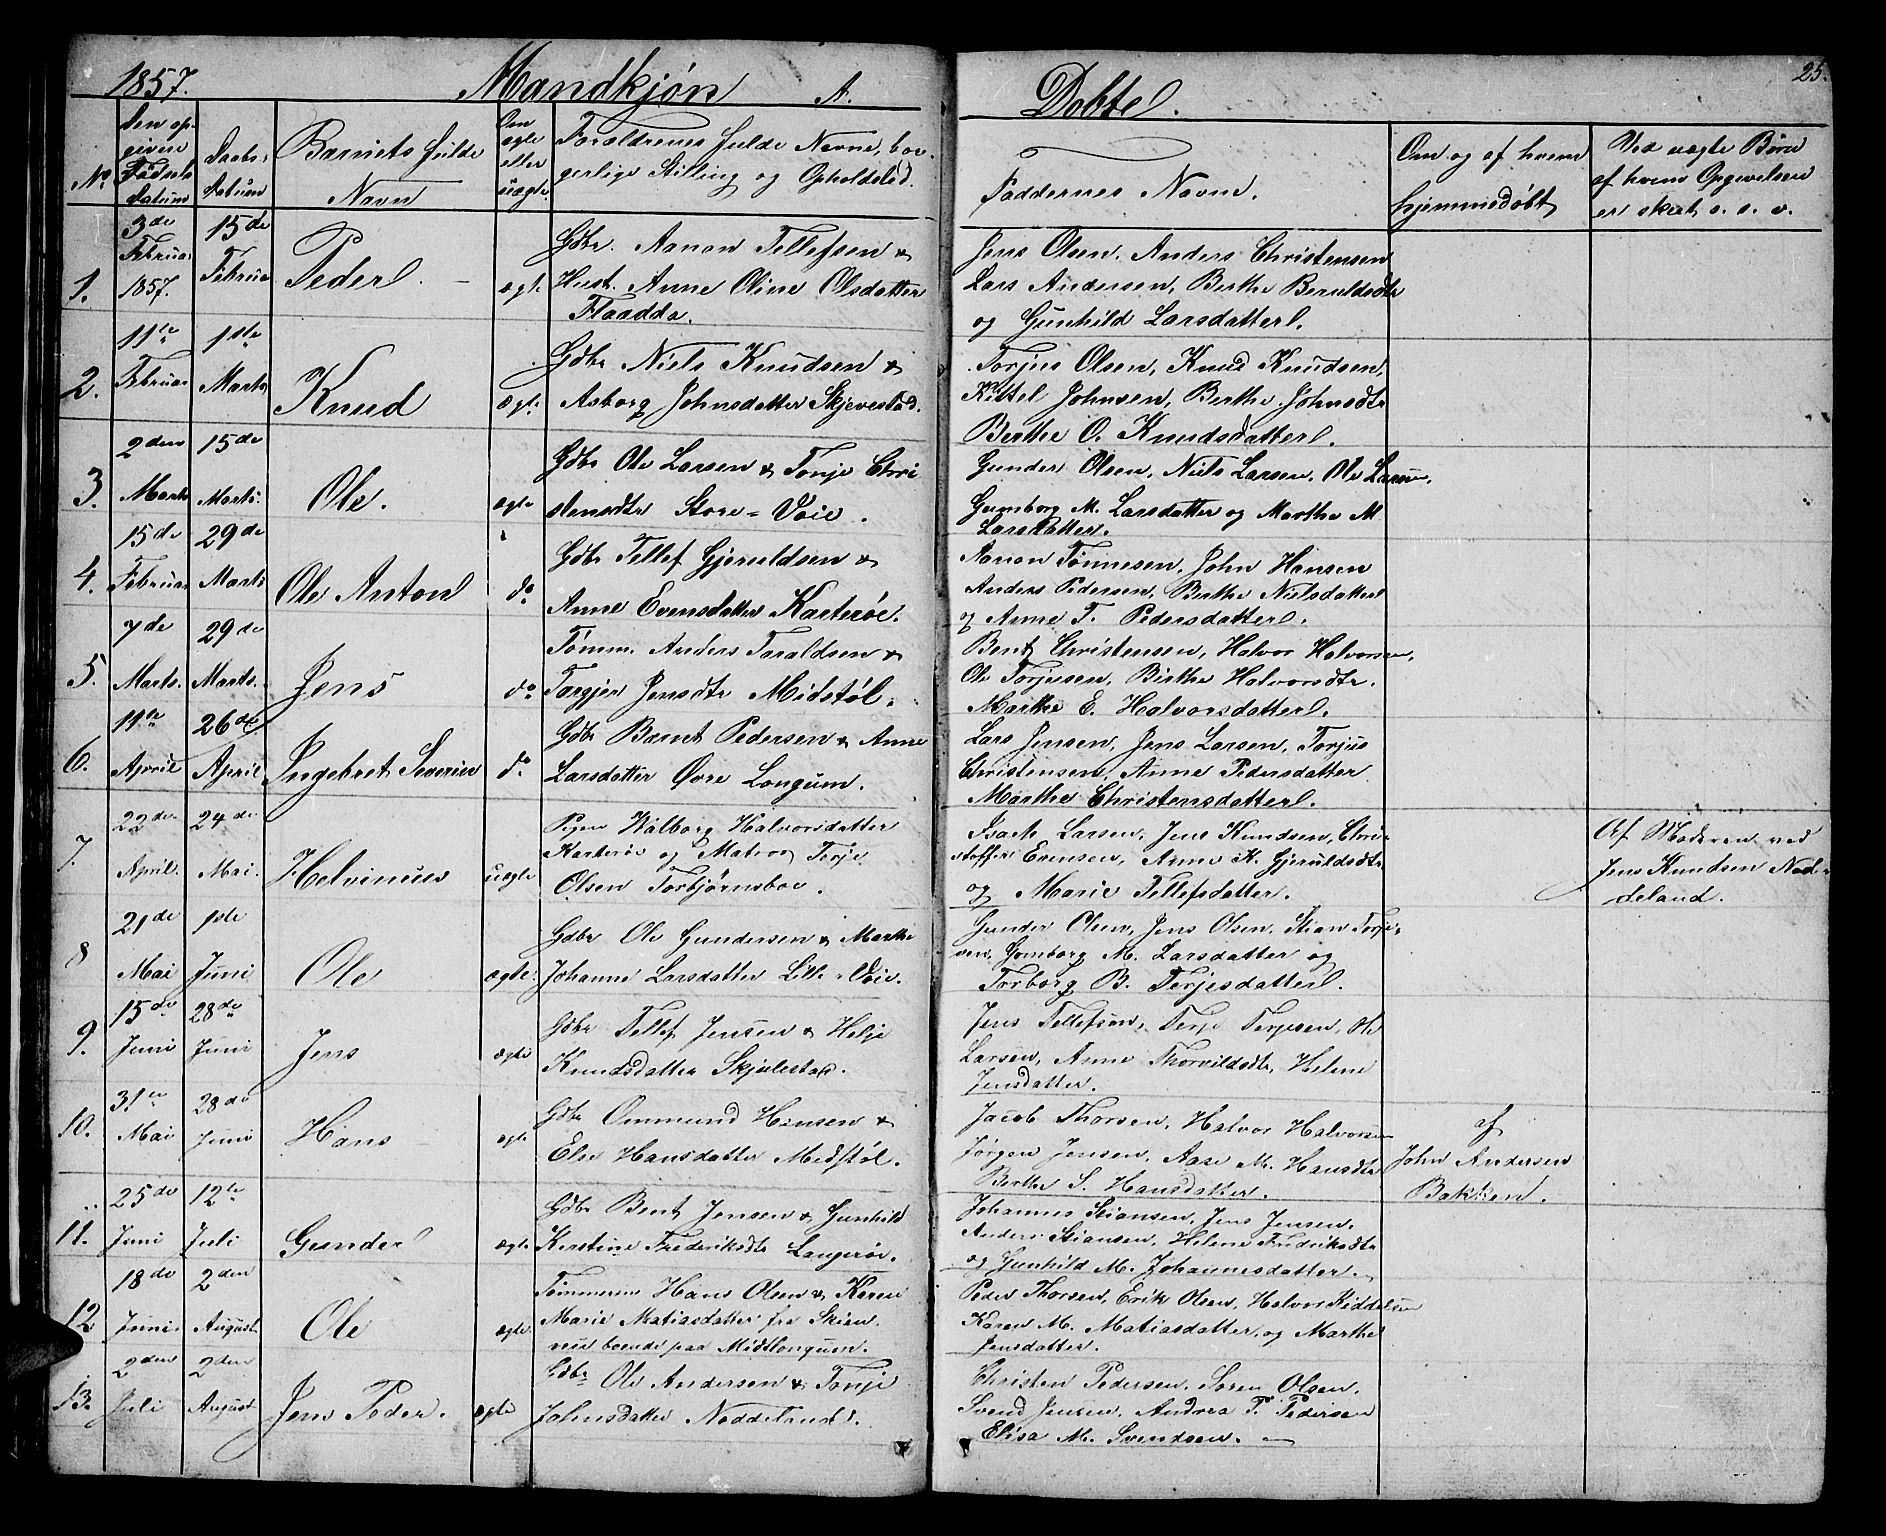 1857. Mandkjøn A.
No
Den op-
givne
Fødsels
Datum
Daabs-
Datum
Barnets fulde
Navn
Om
ægte
eller
uægte.
Forældrenes fulde Navne, bor-
gerlige Stilling og Opholdsted.
1.
3de
Februar
1857.
15de
Februar
Peder.
ægte
Gdbr. Aanon Tellefsen &
Hust. Anne Oline Olsdatter
Flaadda.
2.
11te
Februar
1ste
Marts
Knud
ægte
Gdbr Niels Knudsen &
Asborg Johnsdatter Skjevestad.
3.
2den
Marts
15de
Marts.
Ole.
ægte
Gdbr Ole Larsen & Tonje Chri
stensdtr Store = Voie.
4.
15de
Februar
29de
Marts
Ole Anton
do
Gdbr Tellef Gjeruldsen &
Anne Evensdatter Karterøe.
5.
7de
Marts.
29de
Marts.
Jens
do
Tømm. Anders Taraldsen &
Targjer Jensdtr Midstøl.
6.
11te
April
26de
April
Ingebret Severin
do
Gdbr Bernt Pedersen & Anne
Larsdatter Øvre Longum.
7.
22de
April.
24de
Mai.
Helvinius
uægte
Pigen Walborg Halvorsdatter
Karterøe og Matros Terje
Olsen Torbjørnsboe.
8
21de
Mai
1ste
Juni
Ole
ægte.
Gdbr Ole Gundersen & Marthe
Johanne Larsdatter Lille = Voie.
9.
15de
Juni
28de
Juni
Jens
ægte
Gdbr Tellef Jensen & Helje
Knudsdatter Skjulestad.
10.
31te
Mai
28de
Juni
Hans
ægte
Gdbr Ommund Hansen &
Else Hansdatter Medstøl.
11.
25de
Juni
12te
Juli
Gunder
ægte
Gdbr Bent Jensen & Gunhild
Kirstine Frederiksdtr Langerøe.
12
18de
Juni.
2den
August
Ole
ægte
Tømmerm Hans Olsen & Karen
Marie Matiasdatter fra Skien
nu boende paa Midtlongum.
13.
2den
Juli
2den
August
Jens Peder.
ægte
Gdbr Ole Andersen & Tonje
Johnsdatter Neddeland.
Døbte.
25.
Faddernes Navne.
Om og af hvem
hjemmedøbt
Ved uægte Børn
af hvem Opgivelsen
er skeet o. s. v.
Jens Olsen, Anders Christensen
Lars Andersen, Berthe Beruldsdtr
og Gunhild Larsdatter.
Torjus Olsen, Knud Knudsen,
Kittel Johnsen, Berthe Johnsdtr
Berthe O. Knudsdatter.
Gunder Olsen, Niels Larsen, Ole Larsen,
Gumborg M. Larsdatter og Marthe M
Larsdatter.
Aanon Tønnesen, John Hansen
Anders Pedersen, Berthe Nielsdatter
og Anne T. Pedersdatter.
Bent Christensen, Halvor Halvorsen,
Ole Torjusen, Birthe Halvorsdtr.
Marthe E. Halvorsdatter.
Lars Jensen, Jens Larsen, Torjus
Christensen, Anne Pedersdatter
Marthe Christensdatter.
Isach Larsen, Jens Knudsen, Chri-
stoffer Evensen, Anne K. Gjeruldsdtr
og Marie Tellefsdatter.
Af Moderen ved
Jens Knudsen Ned-
deland.
Gunder Olsen, Jens Olsen, Stian Torje-
sen, Gomborg M. Larsdatter og
Torborg B. Terjesdatter.
Jens Tellefsen, Terje Terjesen, Ole
Larsen, Anne Thorvildsdtr, Helene
Jensdatter.
Jacob Thorsen, Halvor Halvorsen
Jørgen Jensen, Aase M. Hansdtr
Berthe S. Hansdatter.
af
John Andersen
Bakken.
Johannes Stiansen, Jens Jensen.
Anders Stiansen, Helene Fredriksdtr
og Gunhild M. Johannesdatter.
Peder Thorsen, Erik Olsen, Halvor Kiddelsen
Karen M. Matiasdatter, og Marthe
Jensdatter.
Christen Pedersen, Søren Olsen,
Svend Jensen, Andrea T. Pedersen
Elisa M. Svendsen.